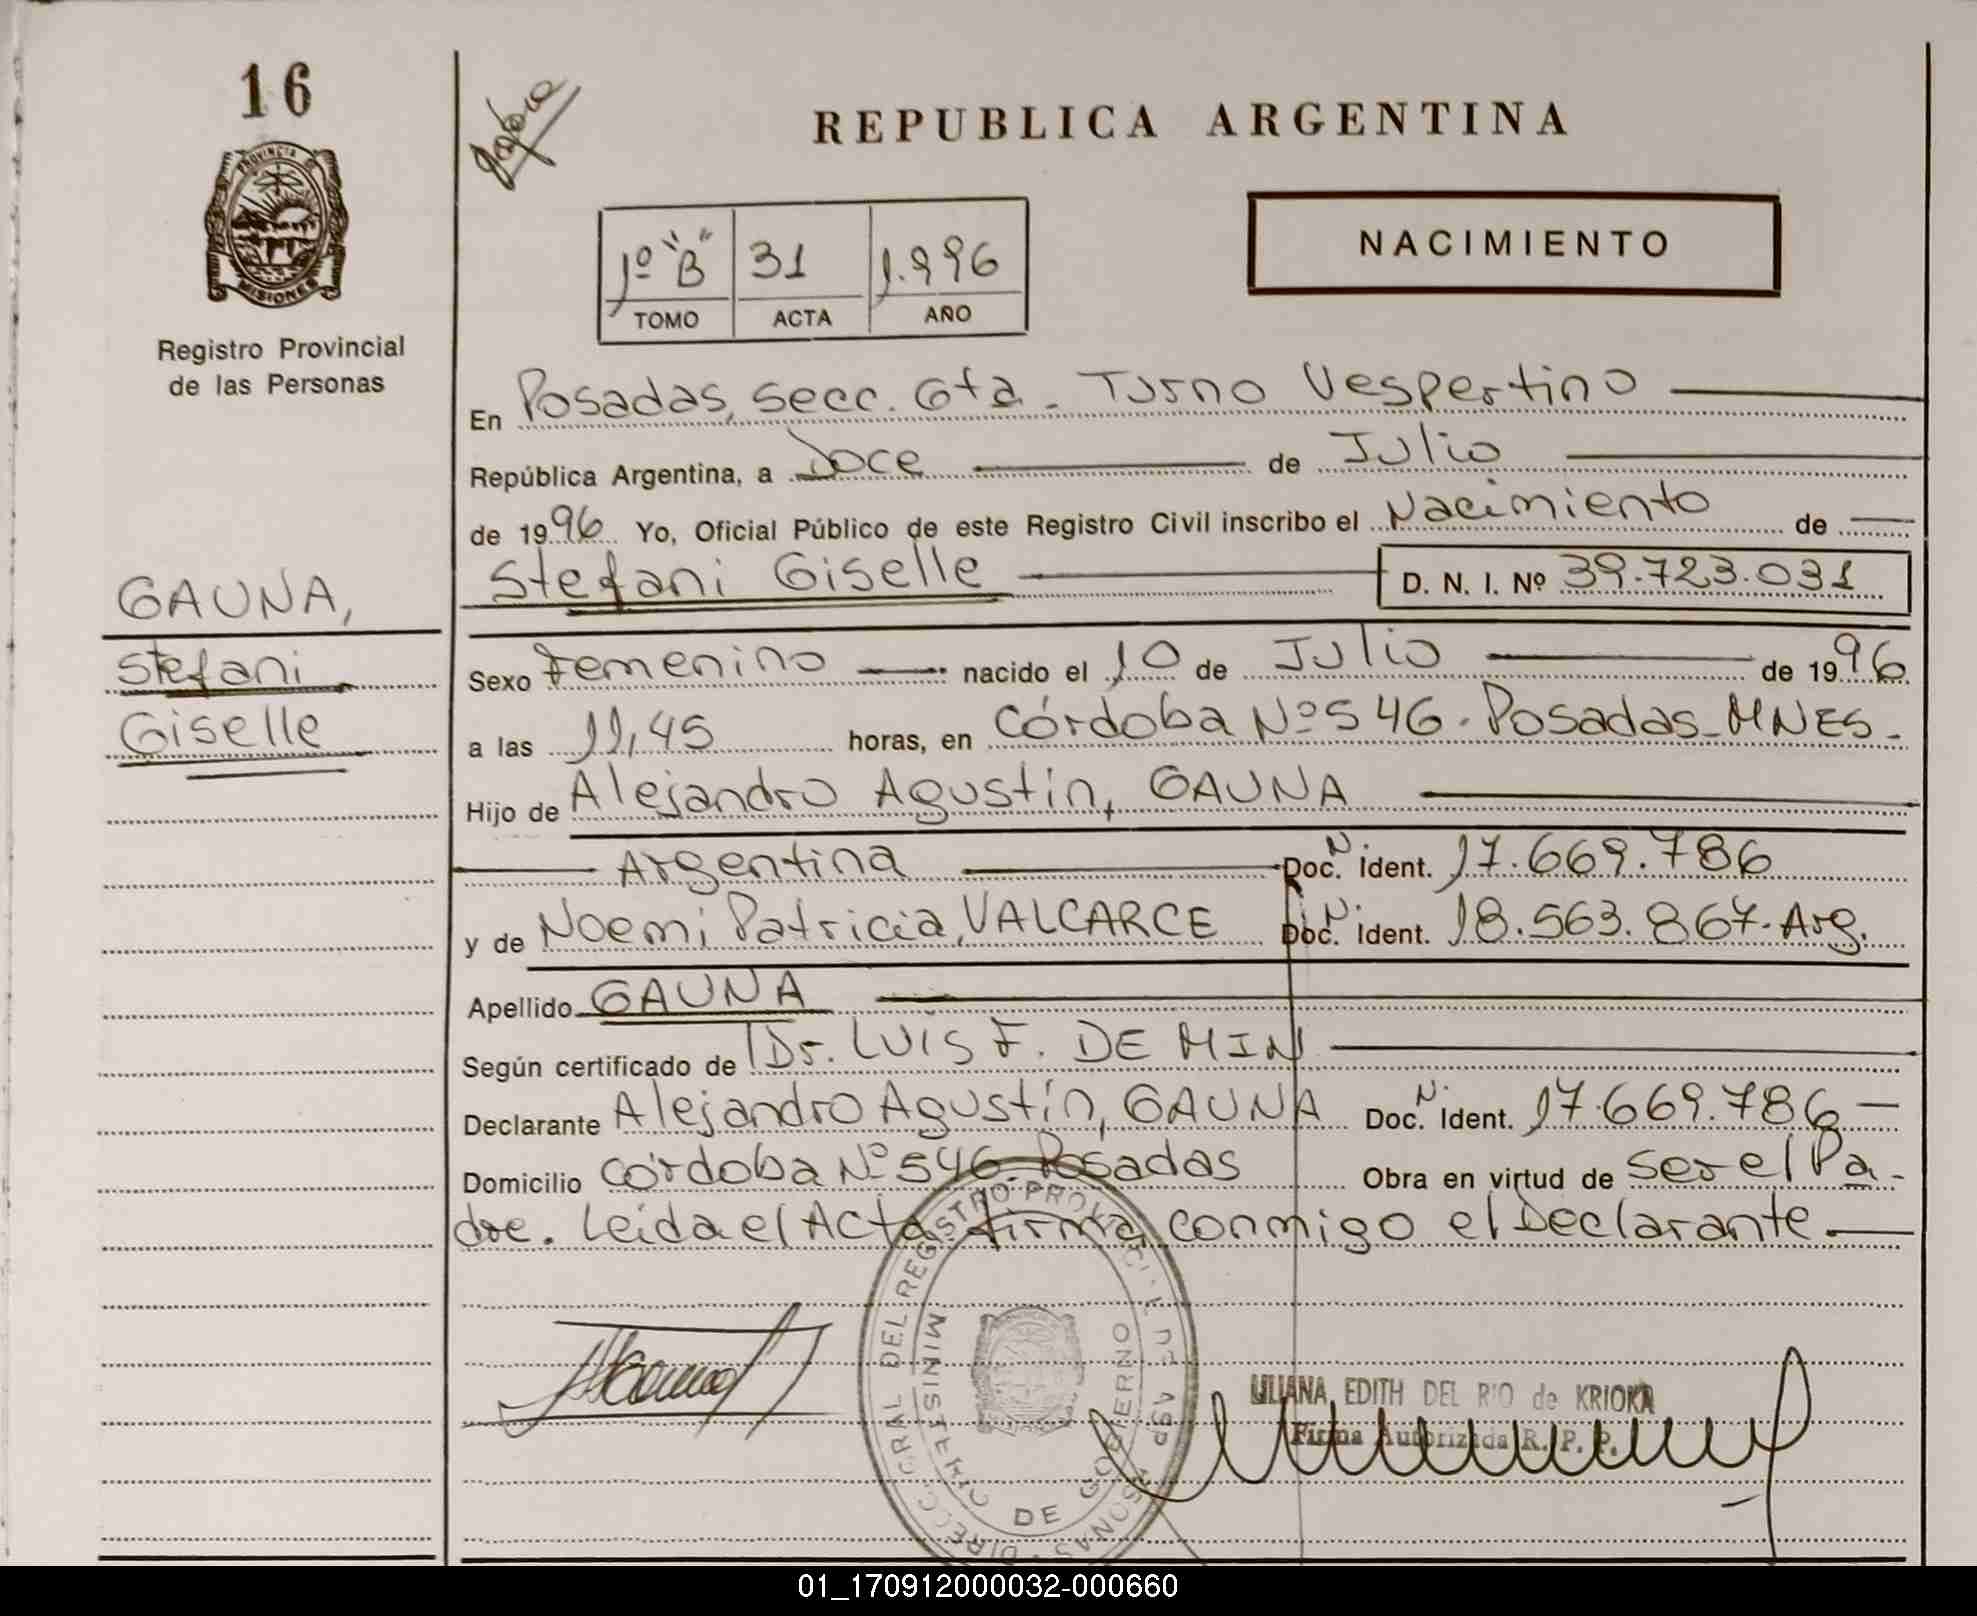 16
PROVINCIA DE
MISIONES
Registro Provincial
de las Personas
GAUNA,
Stefani
Giselle
REPUBLICA ARGENTINA
NACIMIENTO
1º "B" 31 1.996
TOMO ACTA AÑO
En Posadas, secc. 6ta. Turno Vespertino
República Argentina, a Doce de Julio
de 1996 Yo, Oficial Público de este Registro Civil inscribo el Nacimiento de
Stefani Giselle D. N. I. Nº 39.723.031
Sexo Femenino nacido el 10 de Julio de 1996
a las 11,45 horas, en Córdoba Nº 546. Posadas-MNES.
Hijo de Alejandro Agustín, GAUNA
Argentina Doc. N. Ident. 17.669.786
y de Noemi Patricia, VALCARCE Doc. N. Ident. 18.563.867. Arg.
Apellido GAUNA
Según certificado de Dr. LUIS F. DE MIN
Declarante Alejandro Agustín, GAUNA Doc. N. Ident. 17.669.786
Domicilio Córdoba Nº 546. Posadas Obra en virtud de ser el Pa-
dre. Leida el Acta firma conmigo el Declarante.
MINISTERIO DE GOBIERNO
LILIANA EDITH DEL RIO de KRIOKA
Firma Autorizada R. P. P.
01_170912000032-000660